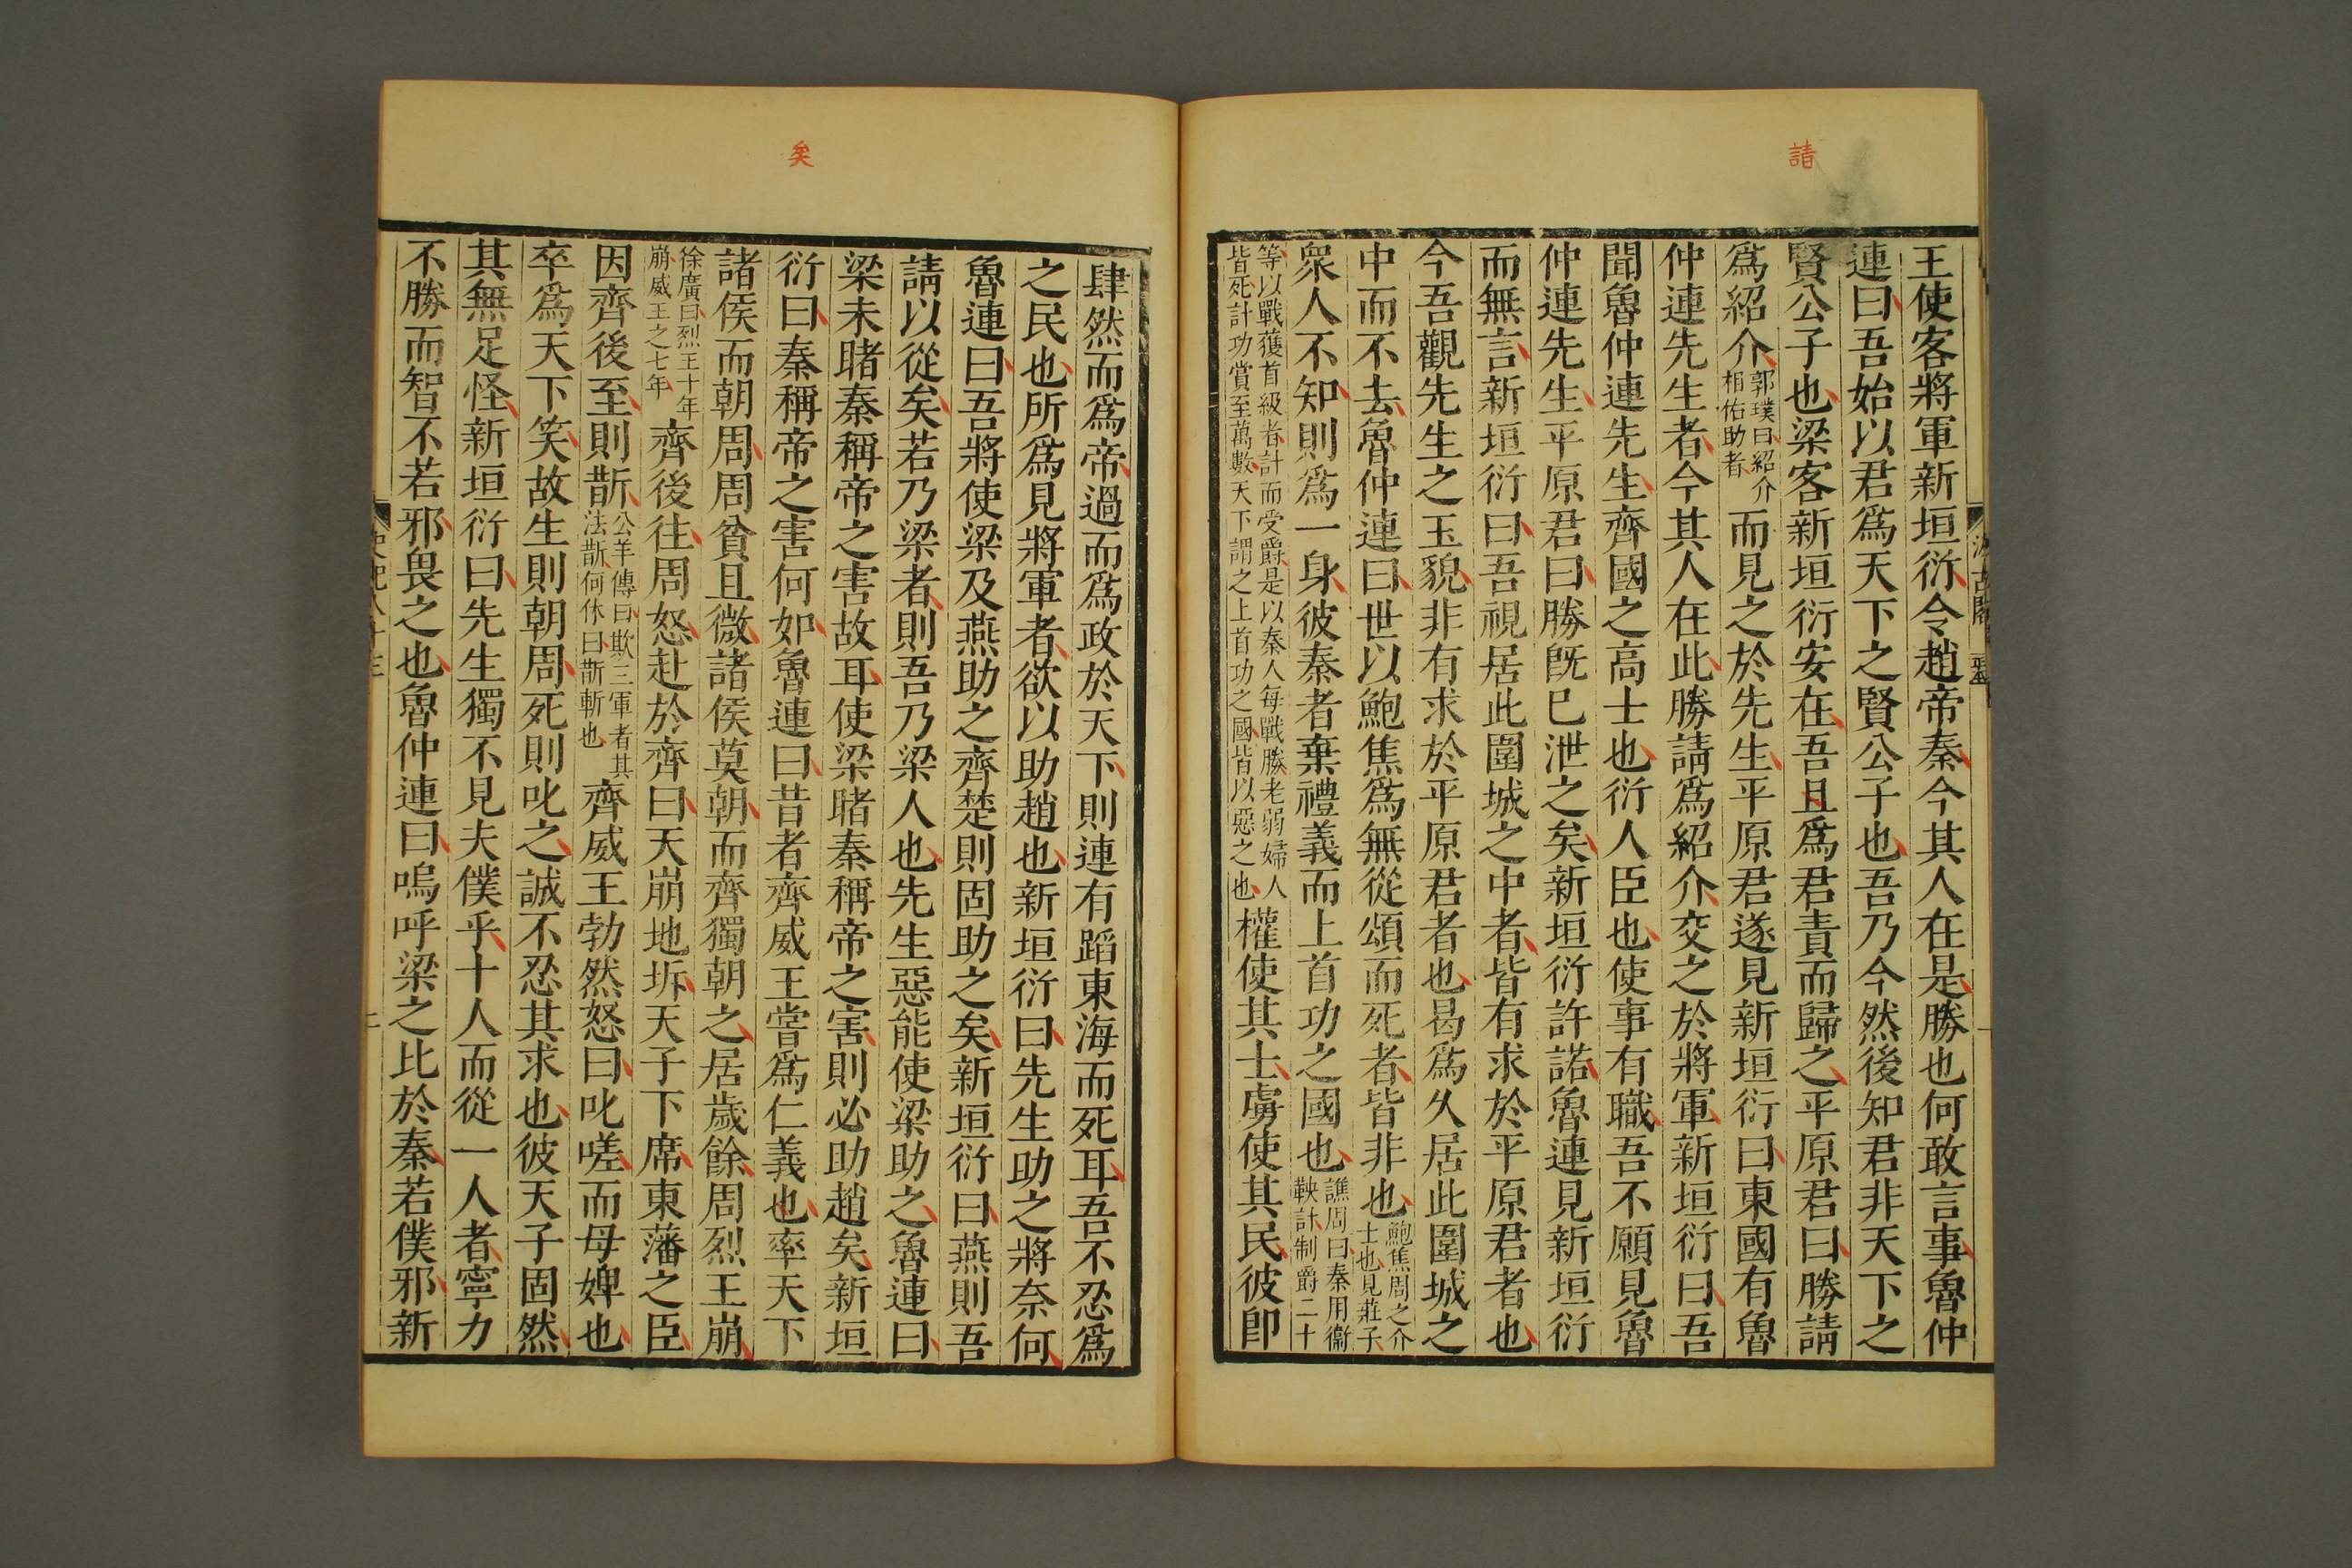 請
王使客將軍新垣衍令趙帝秦今其人在是勝也何敢言事魯仲
連曰吾始以君爲天下之賢公子也吾乃今然後知君非天下之
賢公子也梁客新垣衍安在吾且爲君責而歸之平原君曰勝請
爲紹介郭璞曰紹介相佑助者而見之於先生平原君遂見新垣衍曰東國有魯
仲連先生者今其人在此勝請爲紹介交之於將軍新垣衍曰吾
聞魯仲連先生齊國之高士也衍人臣也使事有職吾不願見魯
仲連先生平原君曰勝旣已泄之矣新垣衍許諾魯連見新垣衍
而無言新垣衍曰吾視居此圍城之中者皆有求於平原君者也
今吾觀先生之玉貌非有求於平原君者也曷爲久居此圍城之
中而不去魯仲連曰世以鮑焦爲無從頌而死者皆非也鮑焦周之介士也見莊子
衆人不知則爲一身彼秦者棄禮義而上首功之國也譙周曰秦用衞鞅計制爵二十
等以戰獲首級者計而受爵是以秦人每戰勝老弱婦人皆死計功賞至萬數天下謂之上首功之國皆以惡之也權使其士虜使其民彼卽
汲古閣
矣
肆然而爲帝過而爲政於天下則連有蹈東海而死耳吾不忍爲
之民也所爲見將軍者欲以助趙也新垣衍曰先生助之將奈何
魯連曰吾將使梁及燕助之齊楚則固助之矣新垣衍曰燕則吾
請以從矣若乃梁者則吾乃梁人也先生惡能使梁助之魯連曰
梁未睹秦稱帝之害故耳使梁睹秦稱帝之害則必助趙矣新垣
衍曰秦稱帝之害何如魯連曰昔者齊威王嘗爲仁義也率天下
諸侯而朝周周貧且微諸侯莫朝而齊獨朝之居歲餘周烈王崩
徐廣曰烈王十年崩威王之七年齊後往周怒赴於齊曰天崩地坼天子下席東藩之臣
因齊後至則斮公羊傳曰欺三軍者其法斮何休曰斮斬也齊威王勃然怒曰叱嗟而母婢也
卒爲天下笑故生則朝周死則叱之誠不忍其求也彼天子固然
其無足怪新垣衍曰先生獨不見夫僕乎十人而從一人者寧力
不勝而智不若邪畏之也魯仲連曰嗚呼梁之比於秦若僕邪新
史記八十三